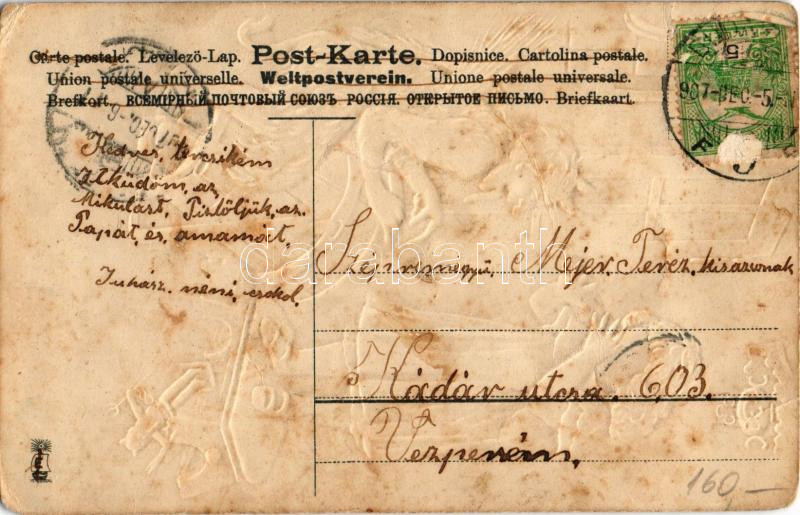 Carte postale. Levelező-Lap. Post-Karte. Dopisnice. Cartolina postale.
Union postale universelle. Weltpostverein. Unione postale universale.
Brefkort. ВСЕМІРНЫЙ ПОЧТОВЫЙ СОЮЗЪ РОССІЯ. ОТКРЫТОЕ ПИСЬМО. Briefkaart.
907-DEC.-5.
5
Kedves, tercsikém
Elküdöm, az,
Mikulást, Tistöljük, az.
Papát, és, amamát,
Juhász. néni, csokol.
Mejer. Teréz. kisazunak
Kádár utcza. 603.
Vezperém,
160,-
darabanth